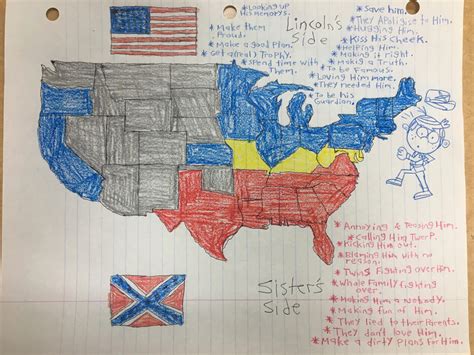 Lincoln's
Side
*Looking up
his memorys.
*Make them
Proud.
*Make a good plan.
*Get a real Trophy.
*Spend time with
Them.
*Save him.
*They Apoligise to Him.
*Hugging Him.
*Kiss His Cheek.
*Helping Him.
*Making it right.
*Making a Truth.
*To be Famous.
*Loving Him more.
*They needed Him.
*To be his
Guardian.
Sister's
Side
*Annoying & Teasing Him.
*Calling Him Twerp.
*Kicking Him out.
*Blaming Him with no
reason.
*Twins Fighting over Him.
*Whole Family fighting
over.
*Making Him a Nobody.
*Making fun of Him.
*They lied to their Parents.
*They don't love Him.
*Make a dirty Plans for Him.